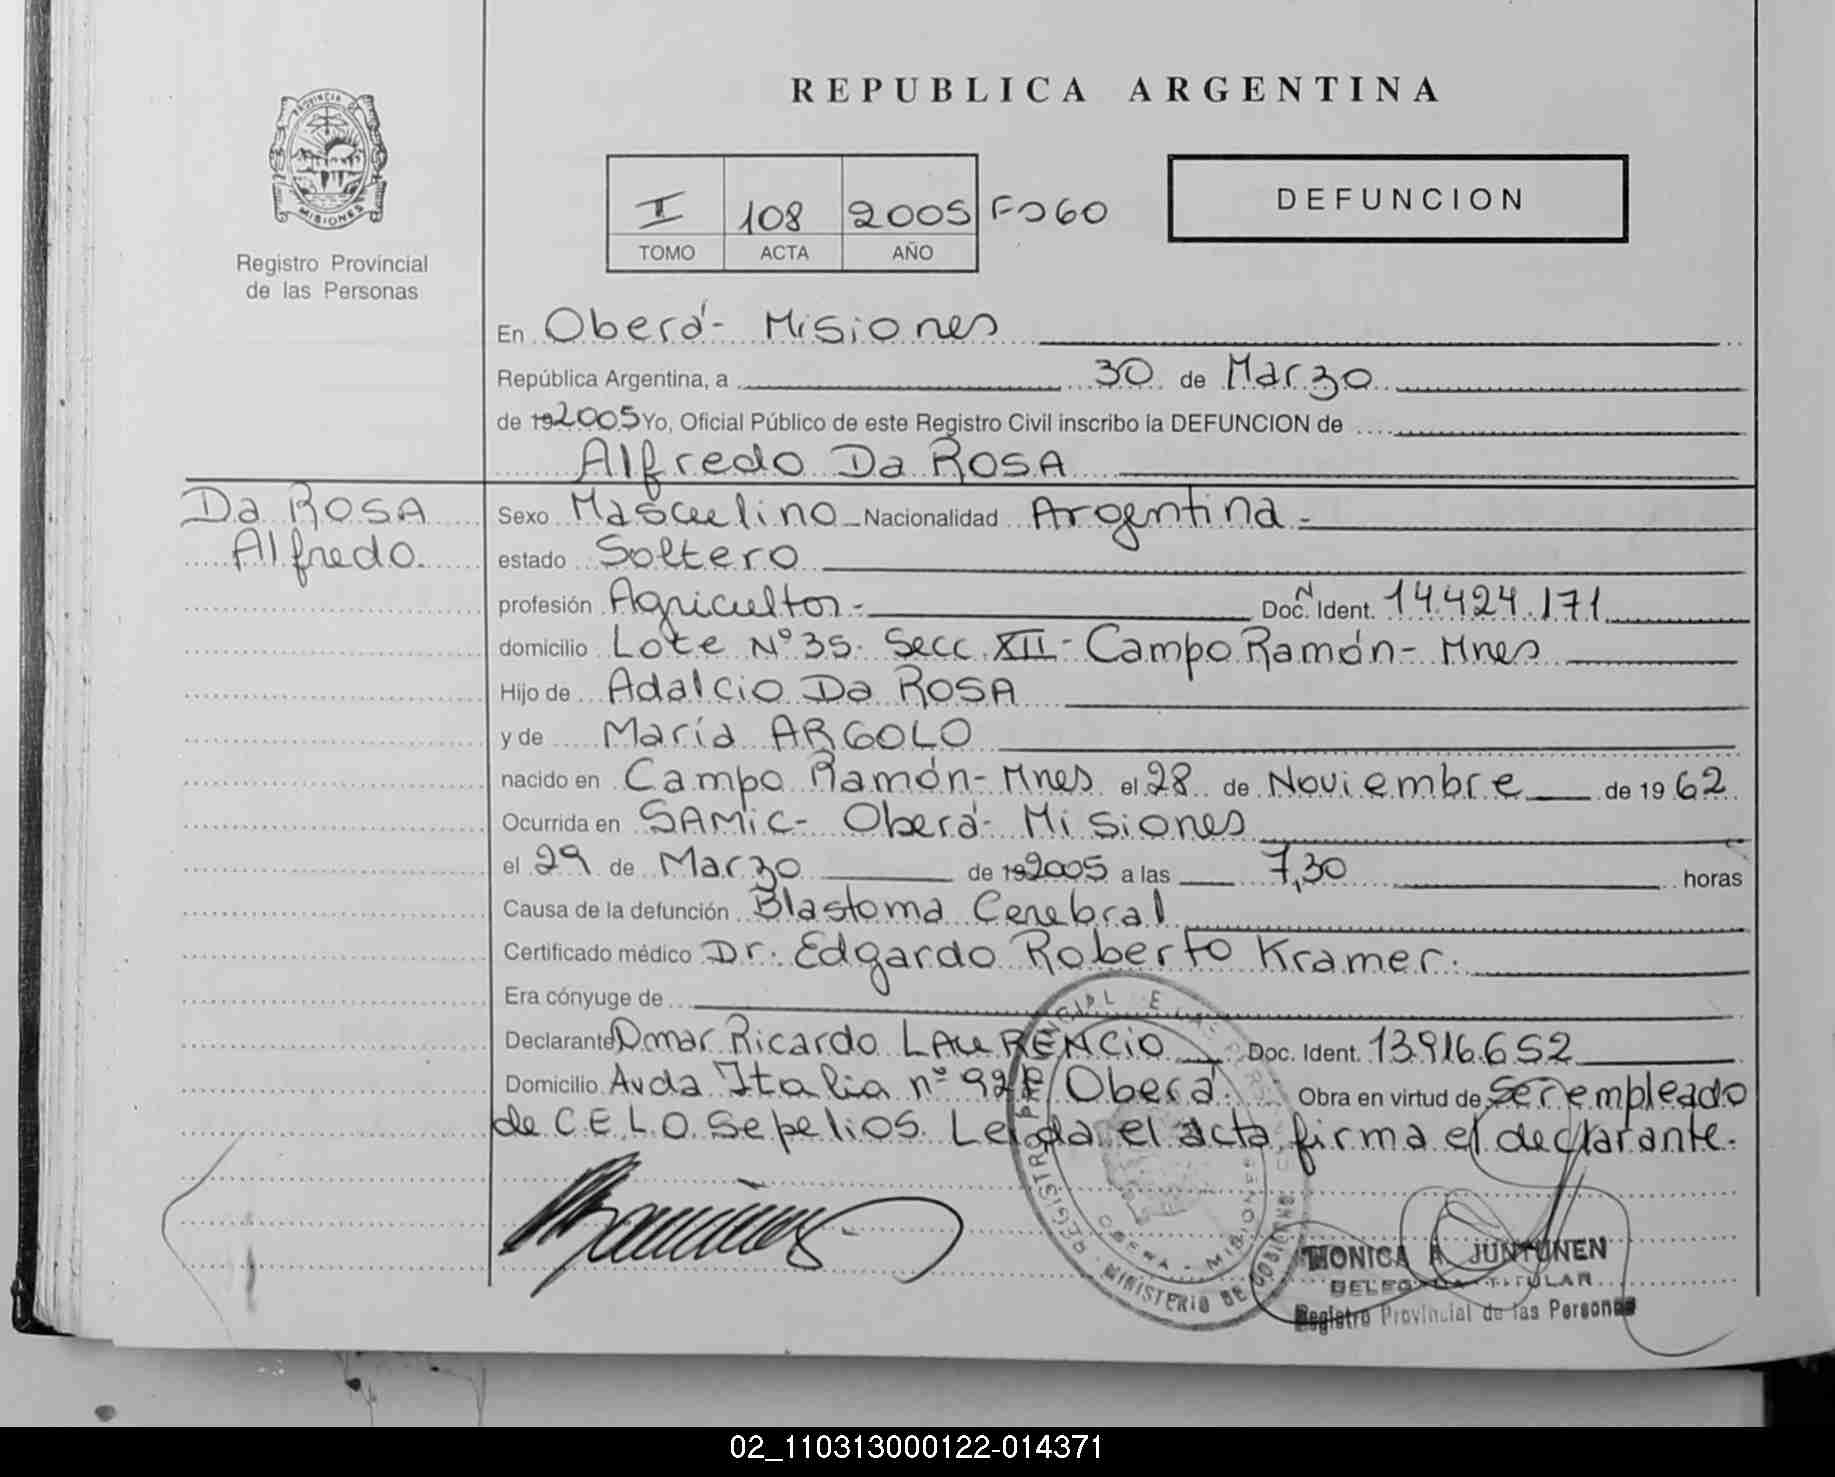 REPUBLICA ARGENTINA
PROVINCIA DE MISIONES
Registro Provincial
de las Personas
I 108 2005 Fo 60
TOMO ACTA AÑO
DEFUNCION
En Oberá - Misiones
República Argentina, a 30 de Marzo
de 19 2005 Yo, Oficial Público de este Registro Civil inscribo la DEFUNCION de
Alfredo Da ROSA
Da ROSA
Alfredo
Sexo Masculino Nacionalidad Argentina -
estado Soltero
profesión Agricultor - Doc. N Ident. 14.424.171
domicilio Lote Nº 35 - Secc XII - Campo Ramón - Mnes
Hijo de Adalcio Da ROSA
y de María ARGOLO
nacido en Campo Ramón - Mnes el 28 de Noviembre de 19 62
Ocurrida en SAMIC - Oberá - Misiones
el 29 de Marzo de 19 2005 a las 7,30 horas
Causa de la defunción Blastoma Cerebral
Certificado médico Dr. Edgardo Roberto Kramer.
Era cónyuge de
Declarante Omar Ricardo LAURENCIO Doc. Ident. 13.916.652
Domicilio Avda Italia nº Oberá Obra en virtud de ser empleado
de C.E.L.O. Sepelios. Leida el acta firma el declarante.
REGISTRO PROVINCIAL DE LAS PERSONAS
OBERA - MISIONES
MINISTERIO DE GOBIERNO
MONICA A. JUNTUNEN
DELEGADA TITULAR
Registro Provincial de las Personas
02_110313000122-014371